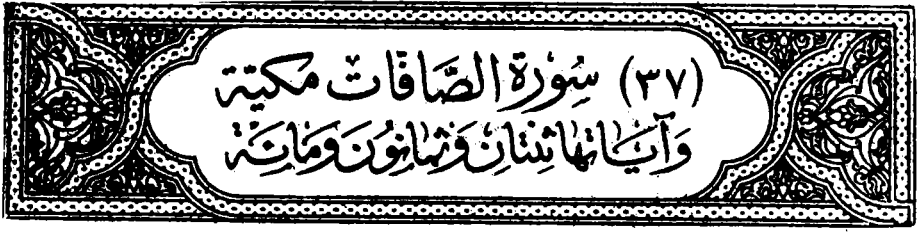 (٣٧) سُورَة الصَّافَاتْ مكيّة
وَآيَاتها ثِنتَانِ وَثمانُونَ وَمَائَة